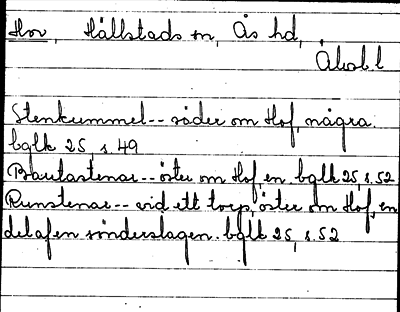 Hov, Hällstads sn, Ås hd,
Älvsb l
Stenkummel-- söder om Hof, några.
bglk 25, s. 49
Bautastenar-- öster om Hof, en bglk 25, s. 52
Runstenar-- vid ett torp, öster om Hof, en
del af en sönderslagen. bglk 25, s. 52